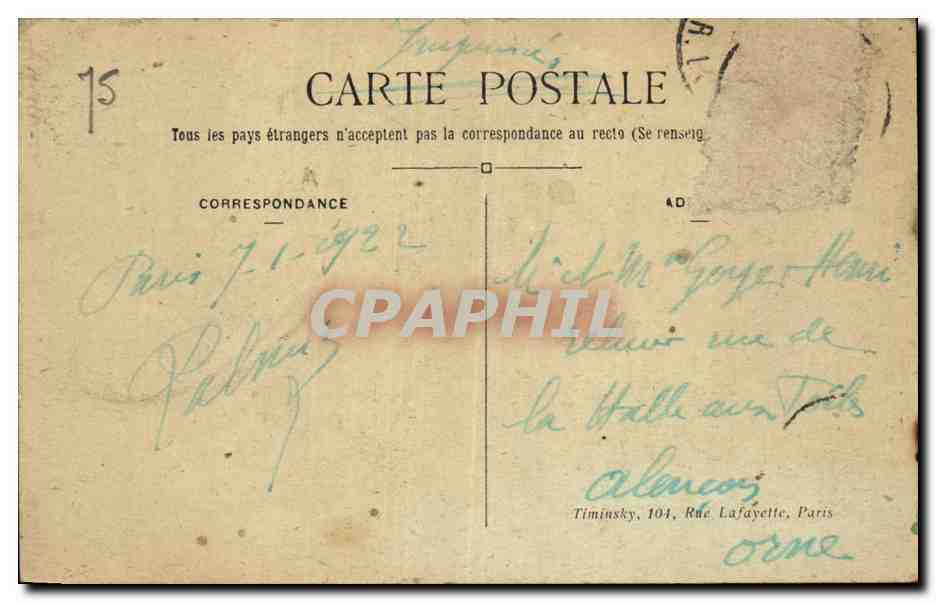 Imprimé
75
R.
CARTE POSTALE
Tous les pays étrangers n'acceptent pas la correspondance au recto (Se renseig
CORRESPONDANCE
AD
Paris 7-1-1922
CPAPHIL
M et Mme Goyer Henri
rue de
la Halle aux Toiles
alençon
Timinsky, 104, Rue Lafayette, Paris
orne